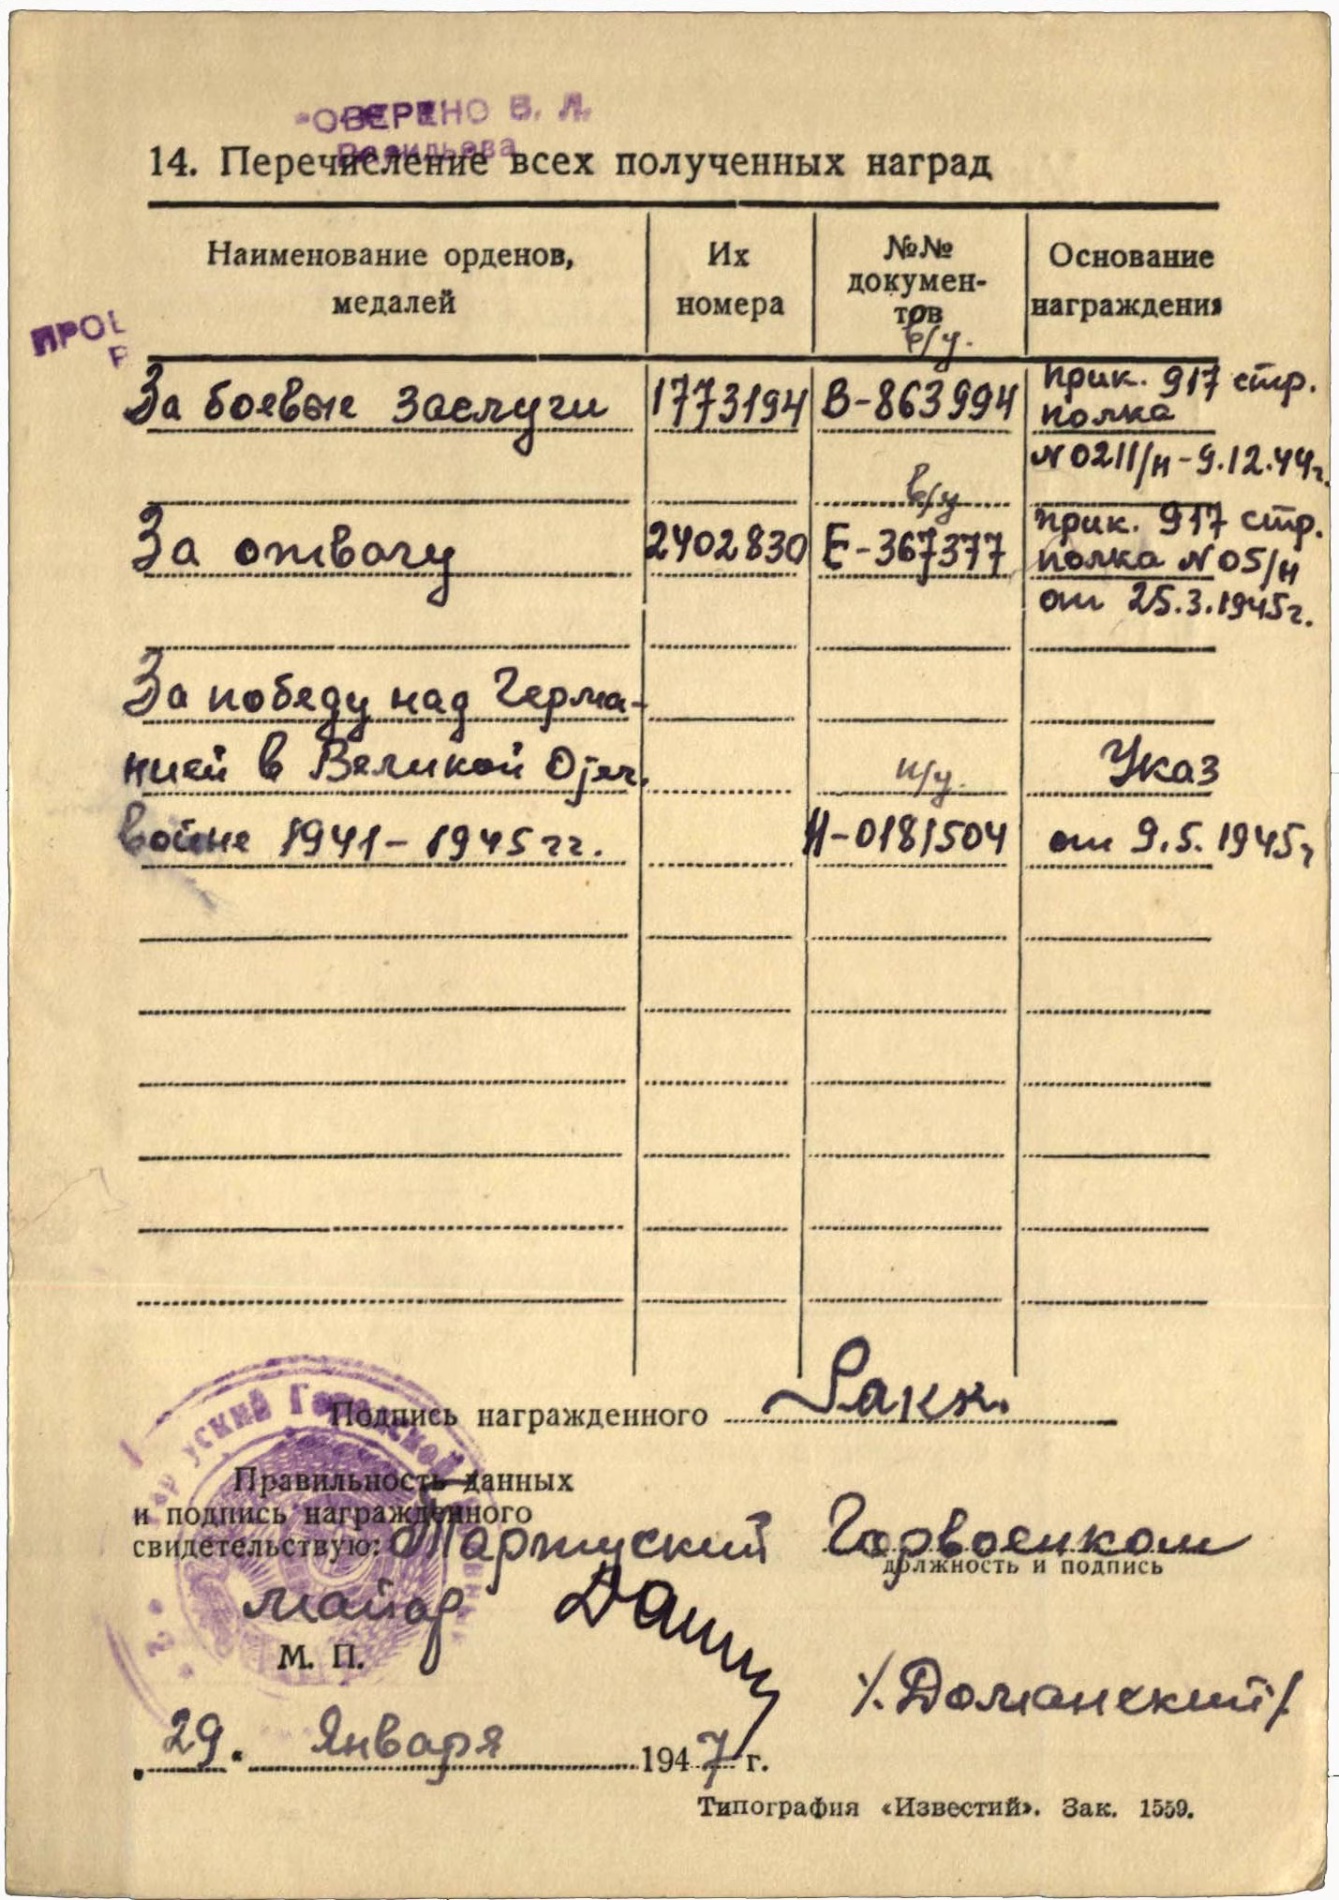 ОВЕРЕНО В. Л.
Васильева
14. Перечисление всех полученных наград
Наименование орденов, медалей
Их номера
№№ докумен-
тов
Основание награждения
в/у.
За боевые заслуги 1773194 В-863994 прик. 917 стр.
полка
N 0211/н - 9.12.44г.
в/у
За отвагу 2402830 Е-367377 прик. 917 стр.
полка N 05/н
от 25.3.1945г.
За победу над Герма-
нией в Великой Отеч. н/у. Указ
войне 1941-1945гг. Н-0181504 от 9.5.1945г
Подпись награжденного
Правильность данных
и подпись награжденного
свидетельствую: Тартуский Горвоенком
должность и подпись
майор
М. П.
/.Доманский/
29. Января 1947 г.
Типография «Известий». Зак. 1559.